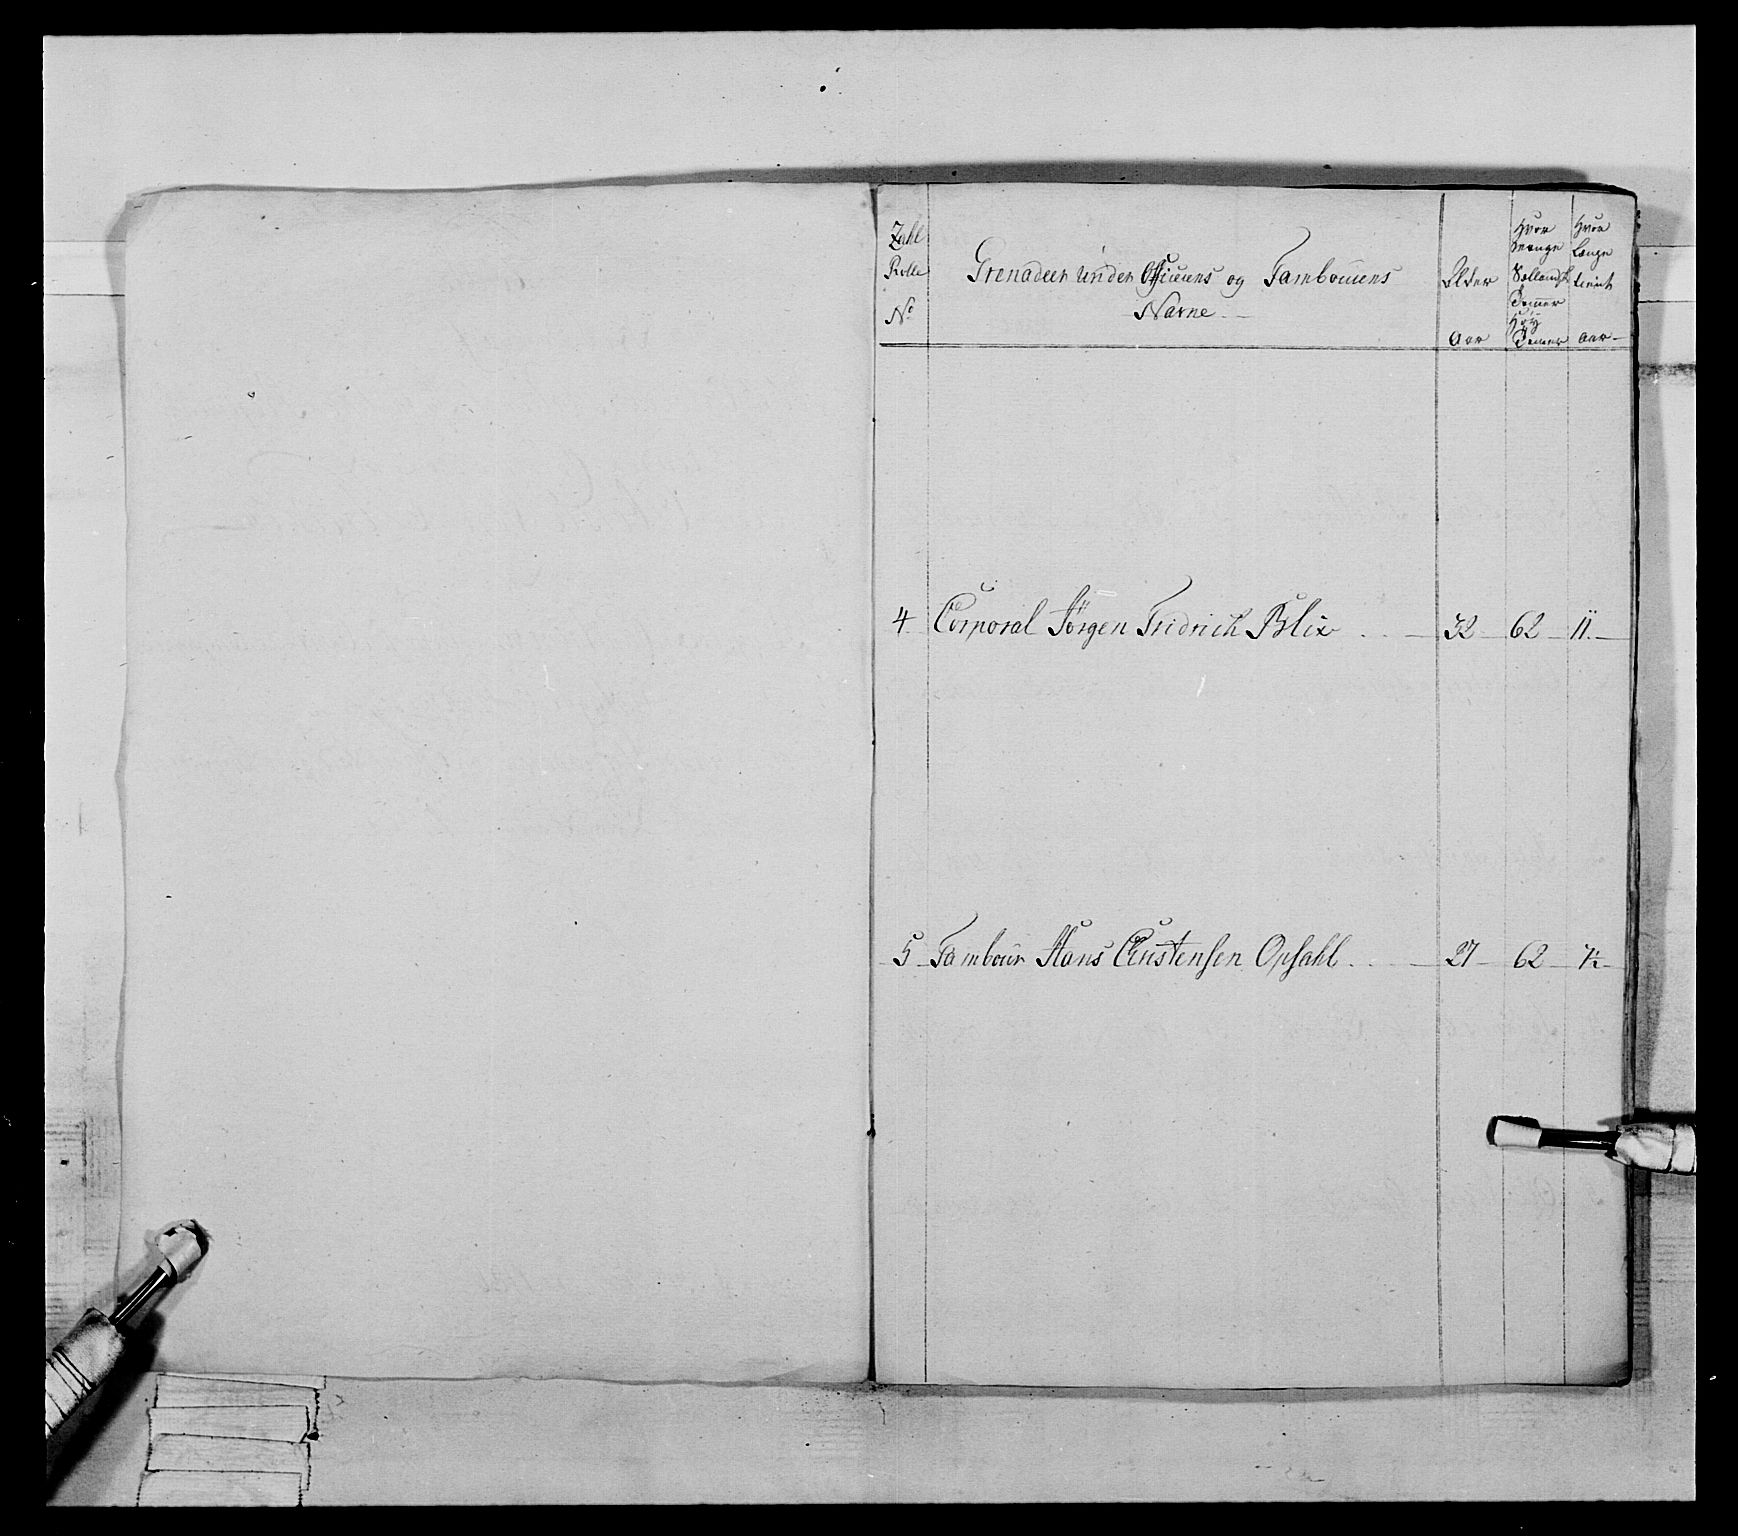 Zahl Rolle No
Grenadeer Under Officiers og Tambouers
Navne
Alder Aar
Hvor mange Sællandsk Tommer Høy Tommer
Hvor Længe tient aar
4 Corporal Jörgen Fridrich Blix 32 62 11
5 Tambour Hans Christensen Opsahl 27 62 7½